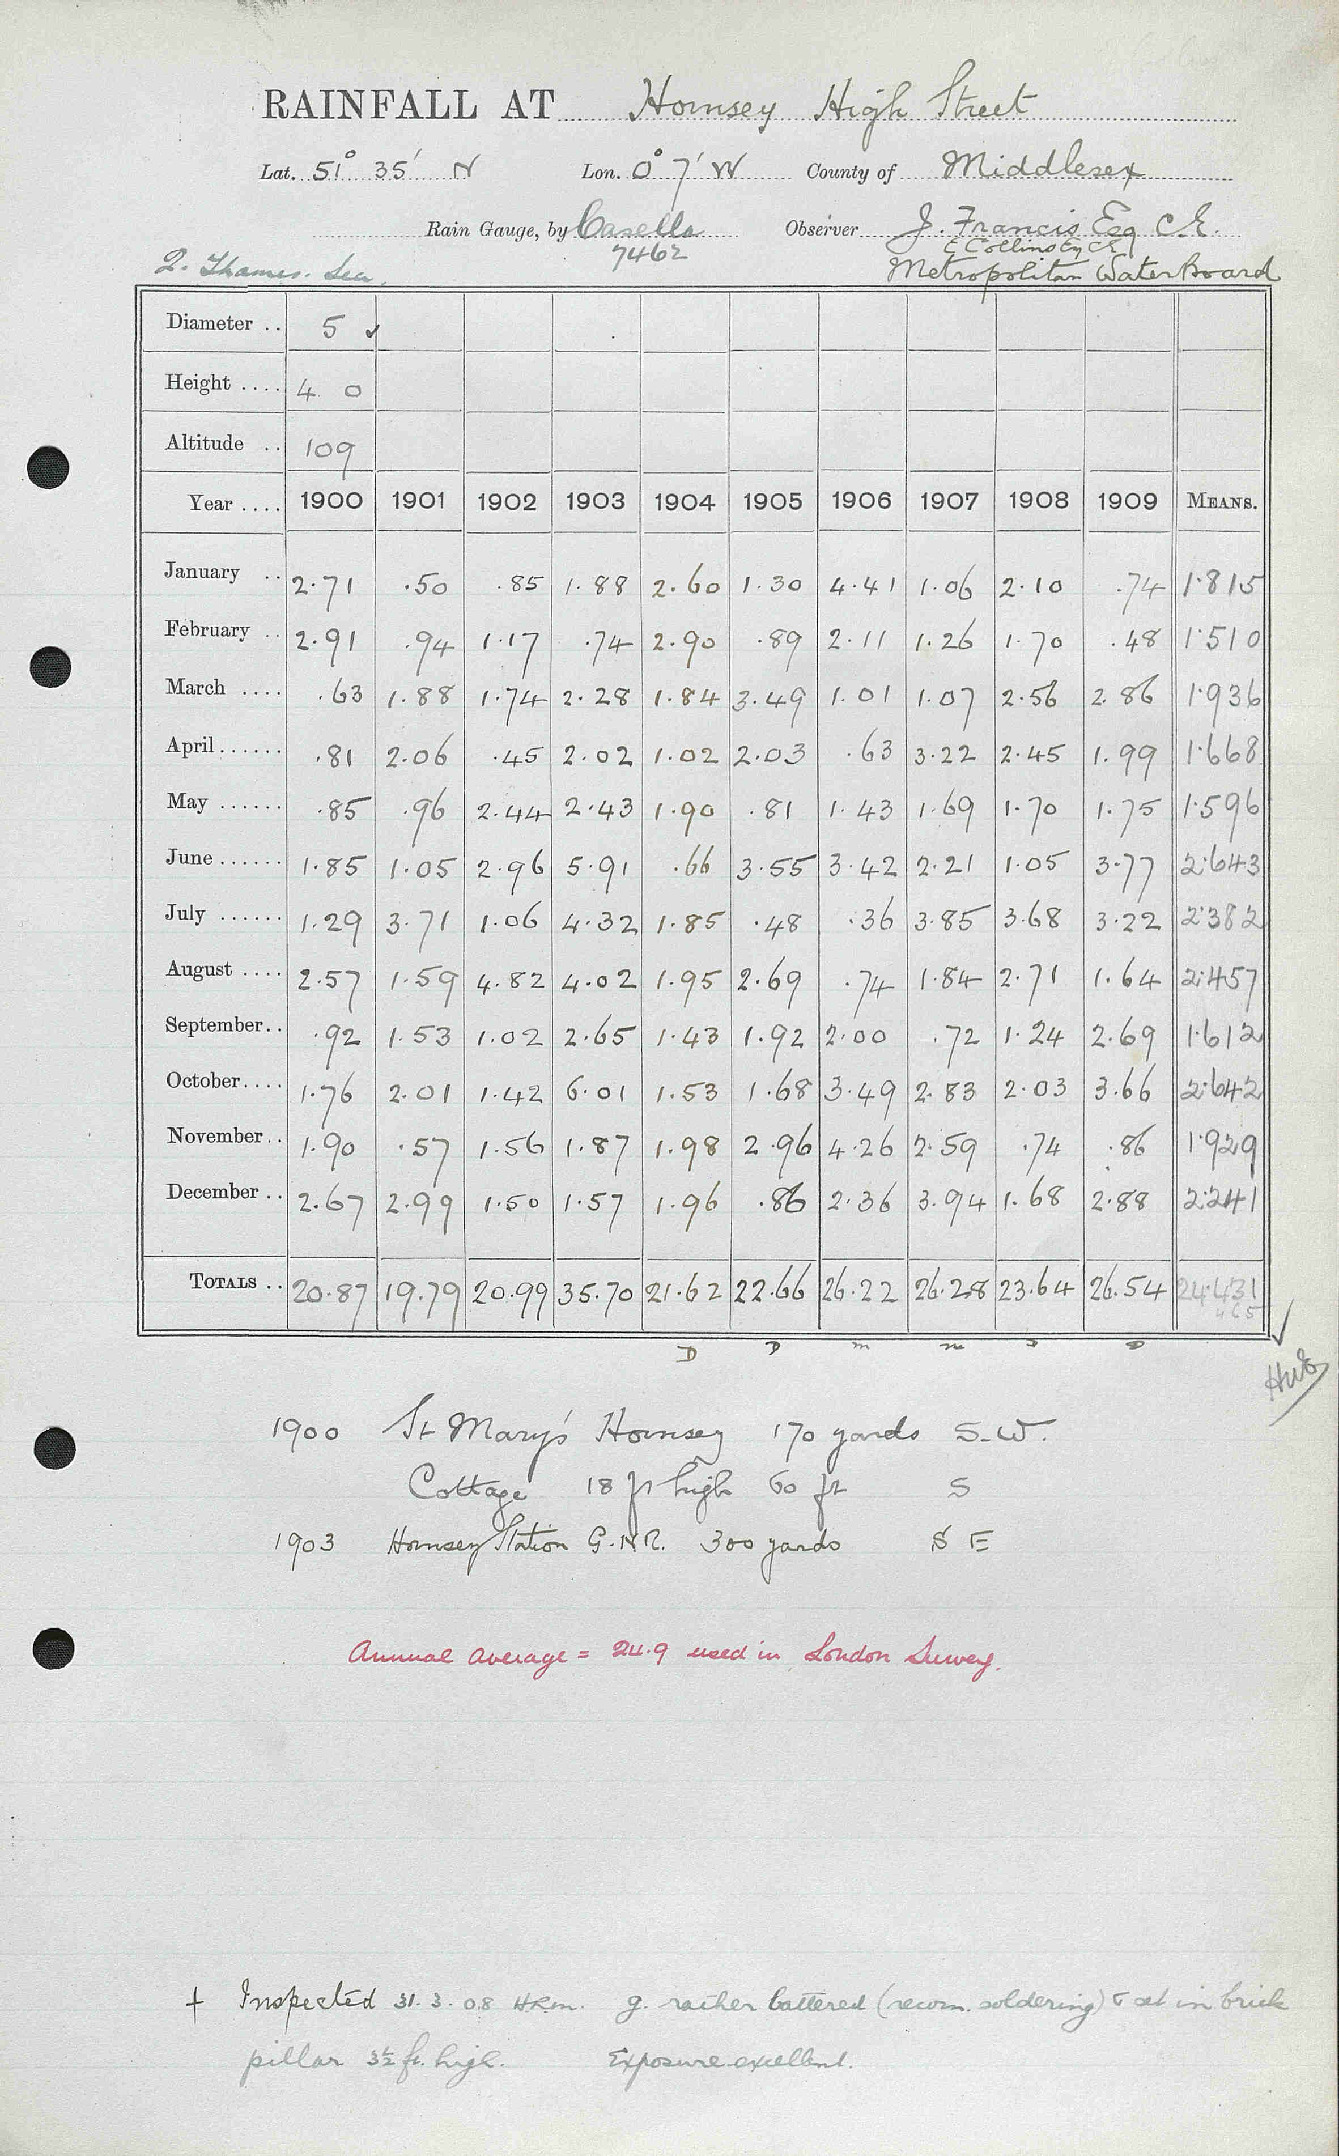 RAINFALL AT Hornsey High Street
Lat. 51° 35' N Lon. 0° 7' W County of Middlesex
Rain Gauge, by Casella Observer J. Francis Esq C.E.
7462 E Collins Esq CE
2. Thames. Lea. Metropolitan Water Board
Diameter .. 5 ✓
Height .... 4 0
Altitude .. 109
Year .... 1900 1901 1902 1903 1904 1905 1906 1907 1908 1909 MEANS.
January .. 2.71 .50 .85 1.88 2.60 1.30 4.41 1.06 2.10 .74 1.815
February .. 2.91 .94 1.17 .74 2.90 .89 2.11 1.26 1.70 .48 1.510
March .... .63 1.88 1.74 2.28 1.84 3.49 1.01 1.07 2.56 2.86 1.936
April ...... .81 2.06 .45 2.02 1.02 2.03 .63 3.22 2.45 1.99 1.668
May ...... .85 .96 2.44 2.43 1.90 .81 1.43 1.69 1.70 1.75 1.596
June ...... 1.85 1.05 2.96 5.91 .66 3.55 3.42 2.21 1.05 3.77 2.643
July ...... 1.29 3.71 1.06 4.32 1.85 .48 .36 3.85 3.68 3.22 2.382
August .... 2.57 1.59 4.82 4.02 1.95 2.69 .74 1.84 2.71 1.64 2.457
September .. .92 1.53 1.02 2.65 1.43 1.92 2.00 .72 1.24 2.69 1.612
October .... 1.76 2.01 1.42 6.01 1.53 1.68 3.49 2.83 2.03 3.66 2.642
November .. 1.90 .57 1.56 1.87 1.98 2.96 4.26 2.59 .74 .86 1.929
December .. 2.67 2.99 1.50 1.57 1.96 .86 2.36 3.94 1.68 2.88 2.241
TOTALS .. 20.87 19.79 20.99 35.70 21.62 22.66 26.22 26.28 23.64 26.54 24.431
D D m m D
1900 St Mary's Hornsey 170 yards S.W.
Cottage 18 ft high 60 ft S
1903 Hornsey Station G.N.R. 300 yards S E
Annual average = 24.9 used in London Survey.
† Inspected 31. 3. 08 HRM. g. rather battered (recom. soldering) & set in brick
pillar 3½ ft. high. Exposure excellent.